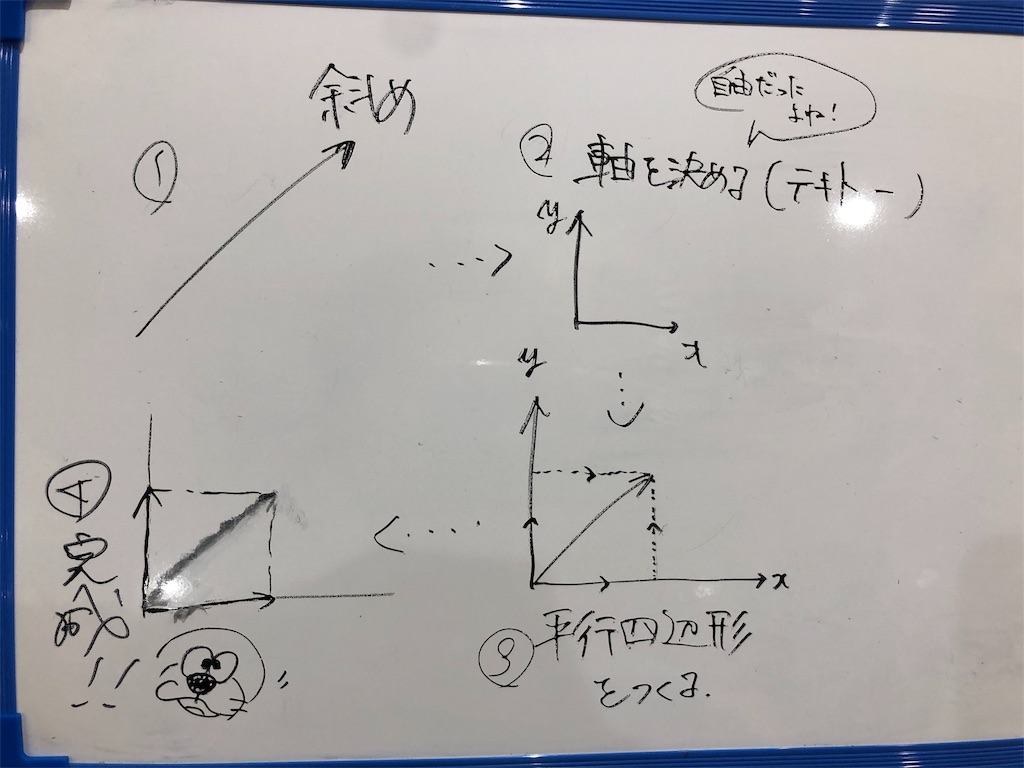 ① 斜め
② 軸を決める(テキトー)
自由だった
よね!
y
x
y
x
③ 平行四辺形
をつくる.
④ 完成!!